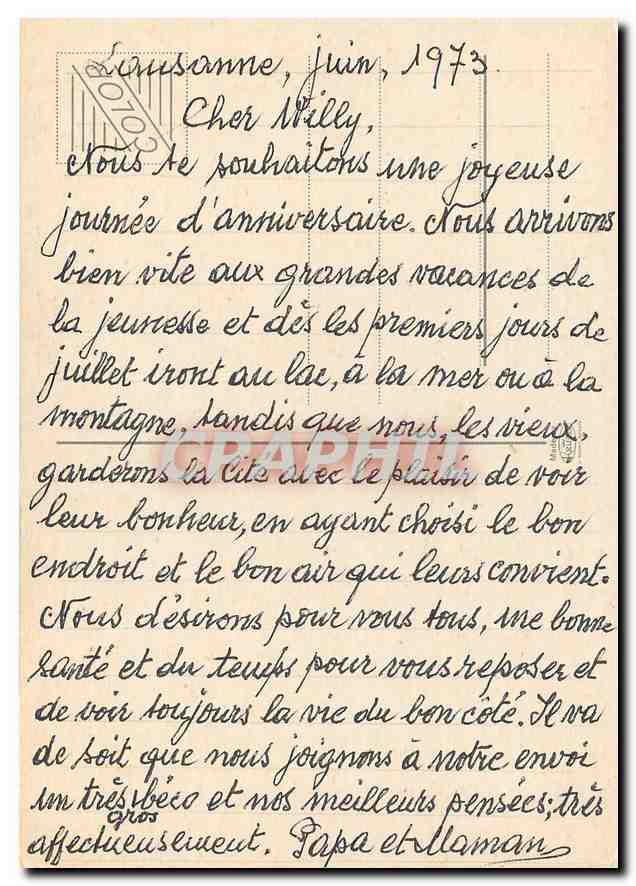 Lausanne, juin, 1973.
COLOR
Cher Willy,
Nous te souhaitons une joyeuse
journée d'anniversaire. Nous arrivons
bien vite aux grandes vacances de
la jeunesse et dès les premiers jours de
juillet iront au lac, à la mer ou à la
montagne, tandis que nous, les vieux,
garderons la cité avec le plaisir de voir
leur bonheur, en ayant choisi le bon
endroit et le bon air qui leurs convient.
Nous désirons pour vous tous, une bonne
santé et du temps pour vous reposer et
de voir toujours la vie du bon côté. Il va
de soit que nous joignons à notre envoi
un très gros béco et nos meilleurs pensées; très
affectueusement. Papa et Maman
CRAPHIL
Made